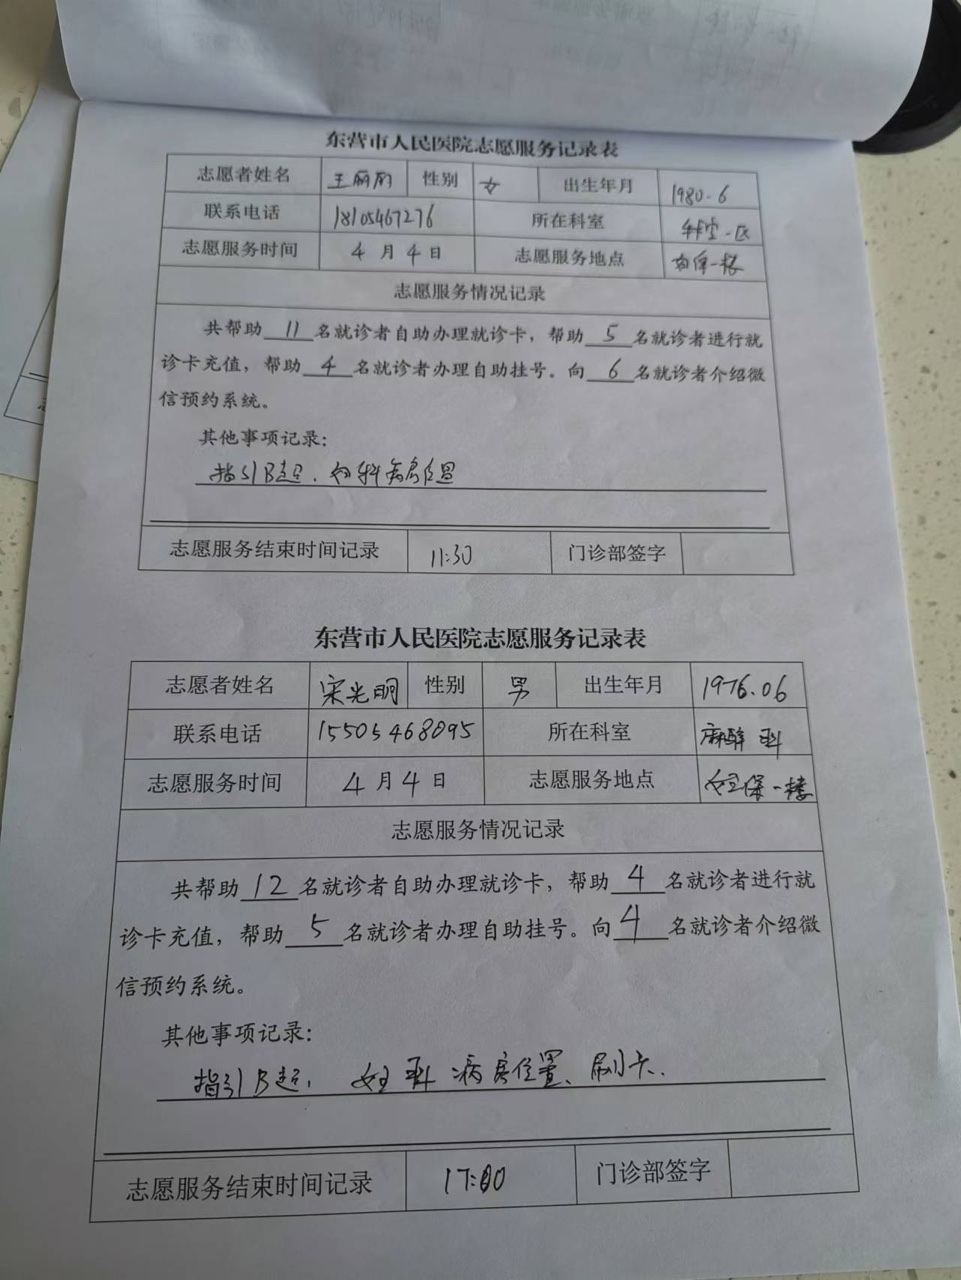 东营市人民医院志愿服务记录表
志愿者姓名 王丽丽 性别 女 出生年月 1980-6
联系电话 18105467276 所在科室
志愿服务时间 4月4日 志愿服务地点 妇保一楼
志愿服务情况记录
共帮助11名就诊者自助办理就诊卡，帮助5名就诊者进行就
诊卡充值，帮助4名就诊者办理自助挂号。向6名就诊者介绍微
信预约系统。
其他事项记录：
指引B超、妇科病房位置
志愿服务结束时间记录 11:30 门诊部签字
东营市人民医院志愿服务记录表
志愿者姓名 宋光明 性别 男 出生年月 1976.06
联系电话 15505468095 所在科室 麻醉科
志愿服务时间 4月4日 志愿服务地点 妇保一楼
志愿服务情况记录
共帮助12名就诊者自助办理就诊卡，帮助4名就诊者进行就
诊卡充值，帮助5名就诊者办理自助挂号。向4名就诊者介绍微
信预约系统。
其他事项记录：
指引B超、妇科病房位置、刷卡.
志愿服务结束时间记录 17:00 门诊部签字